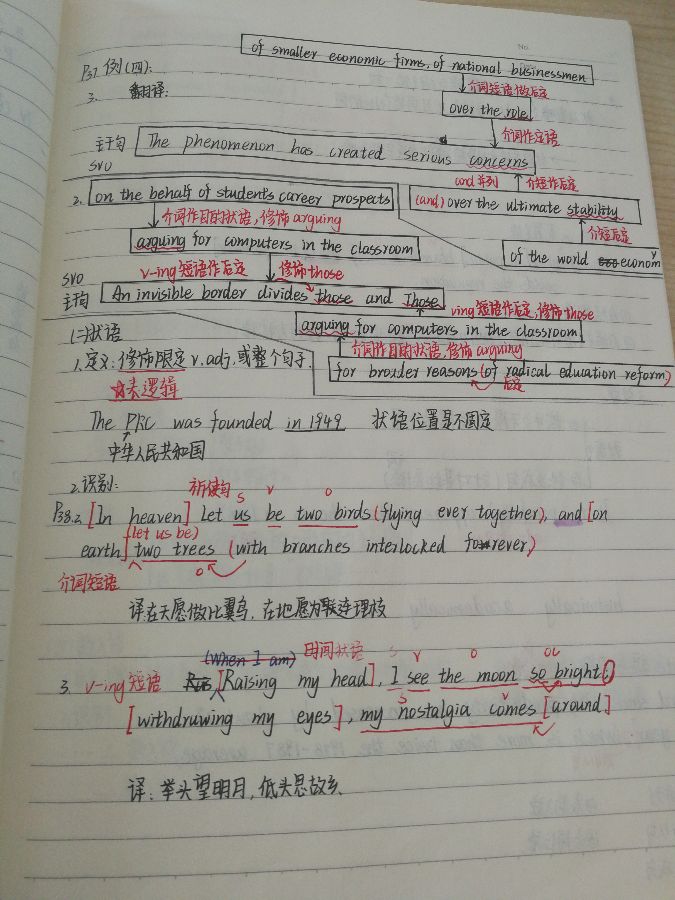 No.
of smaller economic firms, of national businessmen
P37 例(四):
介词短语做后定
3. 翻译:
over the role
介词作定语
主干句 The phenomenon has created serious concerns
SVO
and 并列 介短作后定
2. on the behalf of students career prospects
(and) over the ultimate stability
介词作目的状语, 修饰 arguing
介短后定
arguing for computers in the classroom
of the world economy
v-ing 短语作后定 修饰 those
SVO
主干句 An invisible border divides those and Those
ving 短语作后定, 修饰 those
arguing for computers in the classroom
(二)状语
介词作目的状语, 修饰 arguing
1. 定义: 修饰限定 v. adj, 或整个句子.
for broader reasons (of radical education reform)
后定
☆表逻辑
The PRC was founded in 1949 状语位置是不固定
中华人民共和国
2. 识别:
祈使句 S V O
P38.2. [In heaven] Let us be two birds (flying ever together), and [on
(let us be)
earth] two trees (with branches interlocked forever)
O
介词短语
译: 在天愿做比翼鸟, 在地愿为连理枝
(when I am) 时间状语 S V O OC
3. v-ing 短语 [Raising my head], I see the moon so bright;
S V
[withdruwing my eyes], my nostalgia comes [around]
译: 举头望明月, 低头思故乡